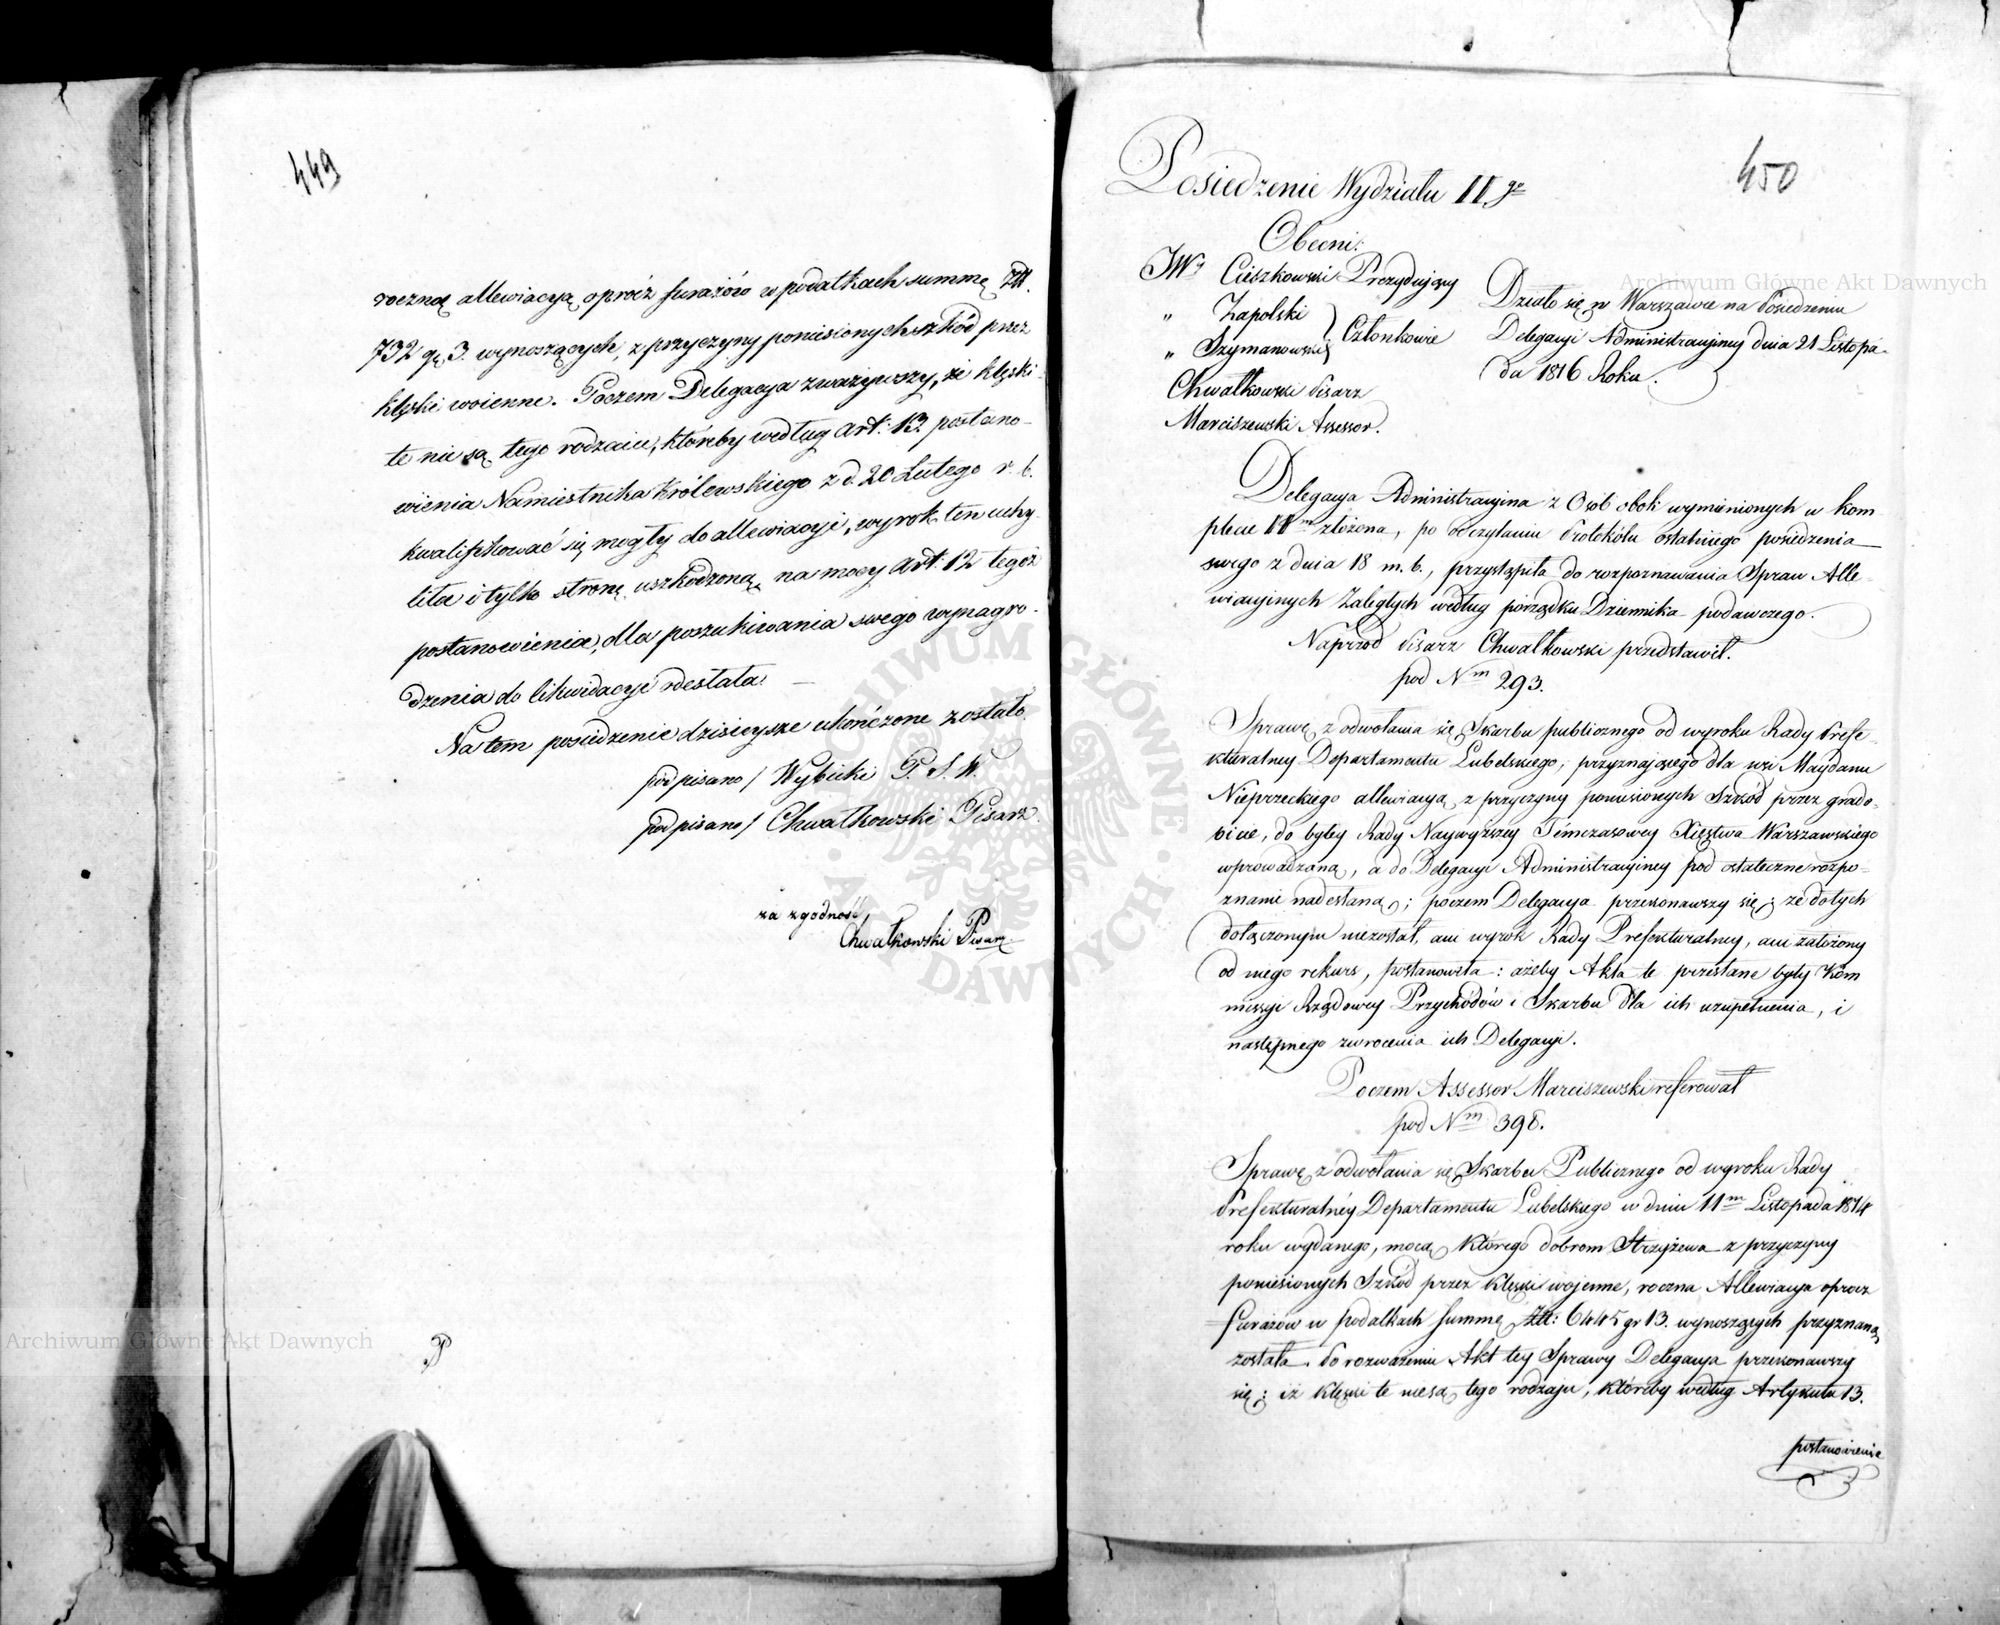 449
roczną allewiacyą oprócz furażów w podatkach summę Złł.
732 gr 3. wynoszących, z przyczyny poniesionych szkód przez
klęski woienne. Poczem Delegacya zważywszy, że klęski
te nie są tego rodzaiu, któreby według Art: 13. postano-
wienia Namiestnika Królewskiego z d. 20 Lutego r. b.
kwalifikować się mogły do allewiacyi, wyrok ten uchy-
liła i tylko stronę uszkodzoną, na mocy Art: 12 tegoż
postanowienia, dla poszukiwania swego wynagro-
dzenia do likwidacyi odesłała. —
Na tem posiedzenie dzisieysze ukończone zostało.
podpisano / Wybicki P. S. W.
podpisano / Chwałkowski Pisarz.
za zgodność
Chwałkowski Pisarz
P
450
Posiedzenie Wydziału II go
Obecni:
JW. Cieszkowski Prezydujący
„ Zapolski
„ Szymanowski } Członkowie
Chwałkowski Pisarz
Marciszewski Assessor.
Działo się w Warszawie na Posiedzeniu
Delegacyi Administracyiney dnia 21 Listopa-
da 1816 Roku.
Delegacya Administracyina z Osób obok wymienionych w kom
plecie II m złożona, po odczytaniu Protokółu ostatniego posiedzenia
swego z dnia 18 m. b., przystąpiła do rozpoznawania Spraw Alle-
wiacyinych Zaległych według porządku Dziennika podawczego.
Naprzód Pisarz Chwałkowski przedstawił.
pod N m 293.
Sprawę z odwołania się Skarbu publicznego od wyroku Rady Prefe-
kturalney Departamentu Lubelskiego, przyznającego dla wsi Maydanu
Nieprzeckiego allewiacyą z przyczyny poniesionych Szkód przez grado-
bicie, do byłey Rady Naywyższey Tymczasowey Xięstwa Warszawskiego
wprowadzoną, a do Delegacyi Administracyiney pod ostateczne rozpo-
znanie nadesłaną; poczem Delegacya przekonawszy się, że dotych
dołączonym niezostał, ani wyrok Rady Prefekturalney, ani założony
od niego rekurs, postanowiła: ażeby Akta te przesłane były Kom
missyi Rządowey Przychodów i Skarbu dla ich uzupełnienia, i
następnego zwrocenia ich Delegacyi.
Poczem Assessor Marciszewski referował
pod N m 398.
Sprawę z odwołania się Skarbu Publicznego od wyroku Rady
Prefekturalnéy Departamentu Lubelskiego w dniu 11 m Listopada 1814
roku wydanego, mocą którego dobrom Strzyżewa z przyczyny
poniesionych Szkód przez klęski wojenne, roczna Allewiacya oprocz
furażów w podatkach Summę Złł: 6445 gr 13. wynoszących przyznaną
została. Po rozważeniu Akt tey Sprawy Delegacya przekonawszy
się; iż klęski te niesą tego rodzaju, któreby według Artykułu 13.
postanowienie
Archiwum Główne Akt Dawnych
Archiwum Główne Akt Dawnych
ARCHIWUM GŁÓWNE · AKT DAWNYCH ·